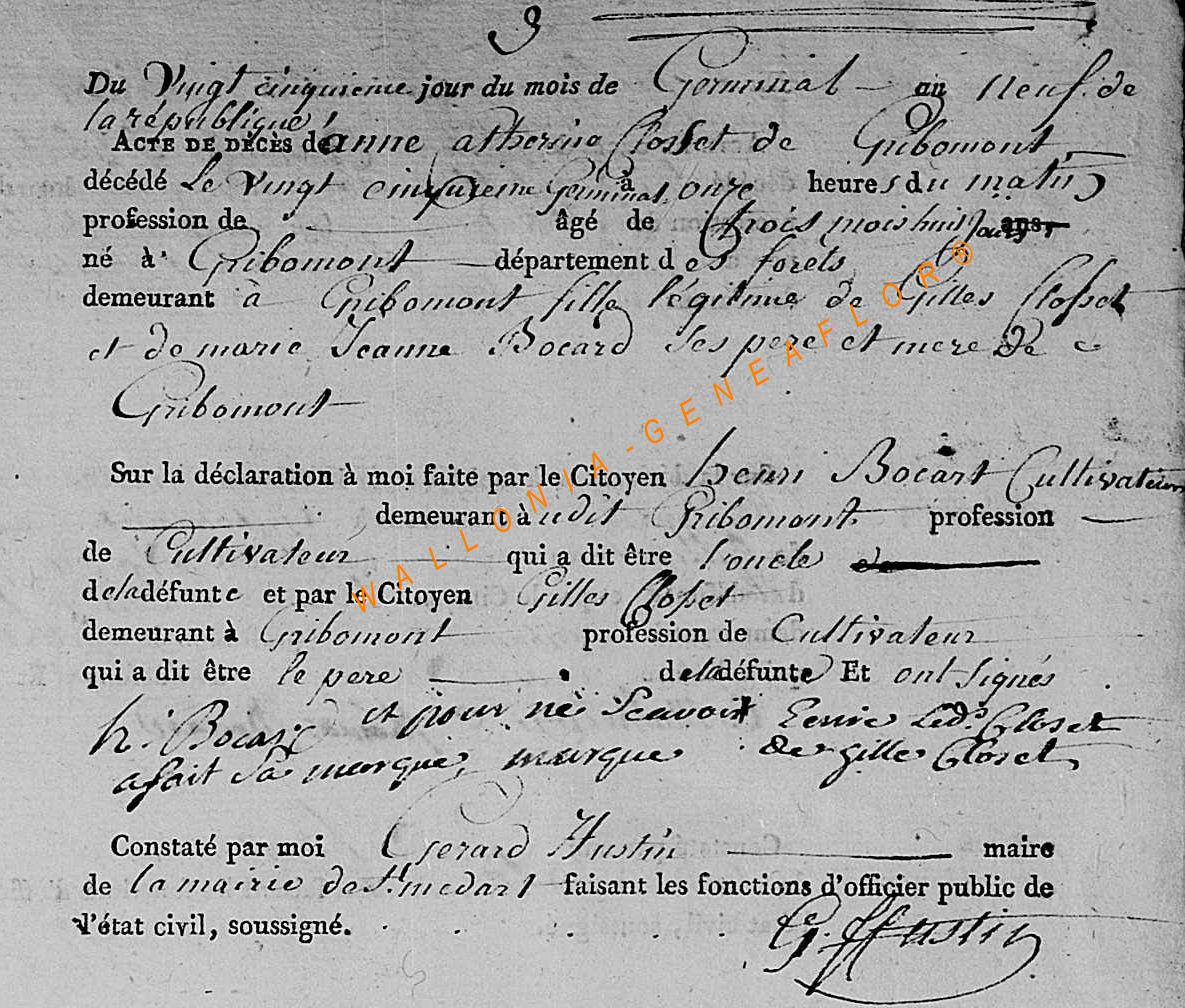 3
Du Vingt cinquieme jour du mois de Germinal an neuf de
la république
ACTE DE DÉCÈS de anne atherine Closset de Gribomont
décédé Le Vingt cinquieme Germinal à onze heures du matin
profession de âgé de trois mois huit jours ans,
né à Gribomont département des forets
demeurant à Gribomont fille légitime de Gilles Closset
et de marie Jeanne Bocard ses pere et mere de
Gribomont
Sur la déclaration à moi faite par le Citoyen henri Bocart Cultivateur
demeurant à udit Gribomont profession
de Cultivateur qui a dit être l'oncle
de la défunte et par le Citoyen Gilles Closset
demeurant à Gribomont profession de Cultivateur
qui a dit être le pere de la défunte Et ont signés
h. Bocart et pour ne scavoir Ecrire Led. Closet
a fait sa marque, marque de gille Closet
Constaté par moi Gerard Hustin maire
de la mairie de St. medart faisant les fonctions d'officier public de
l'état civil, soussigné.
G. Hustin
WALLONIA-GENEAFLOR®